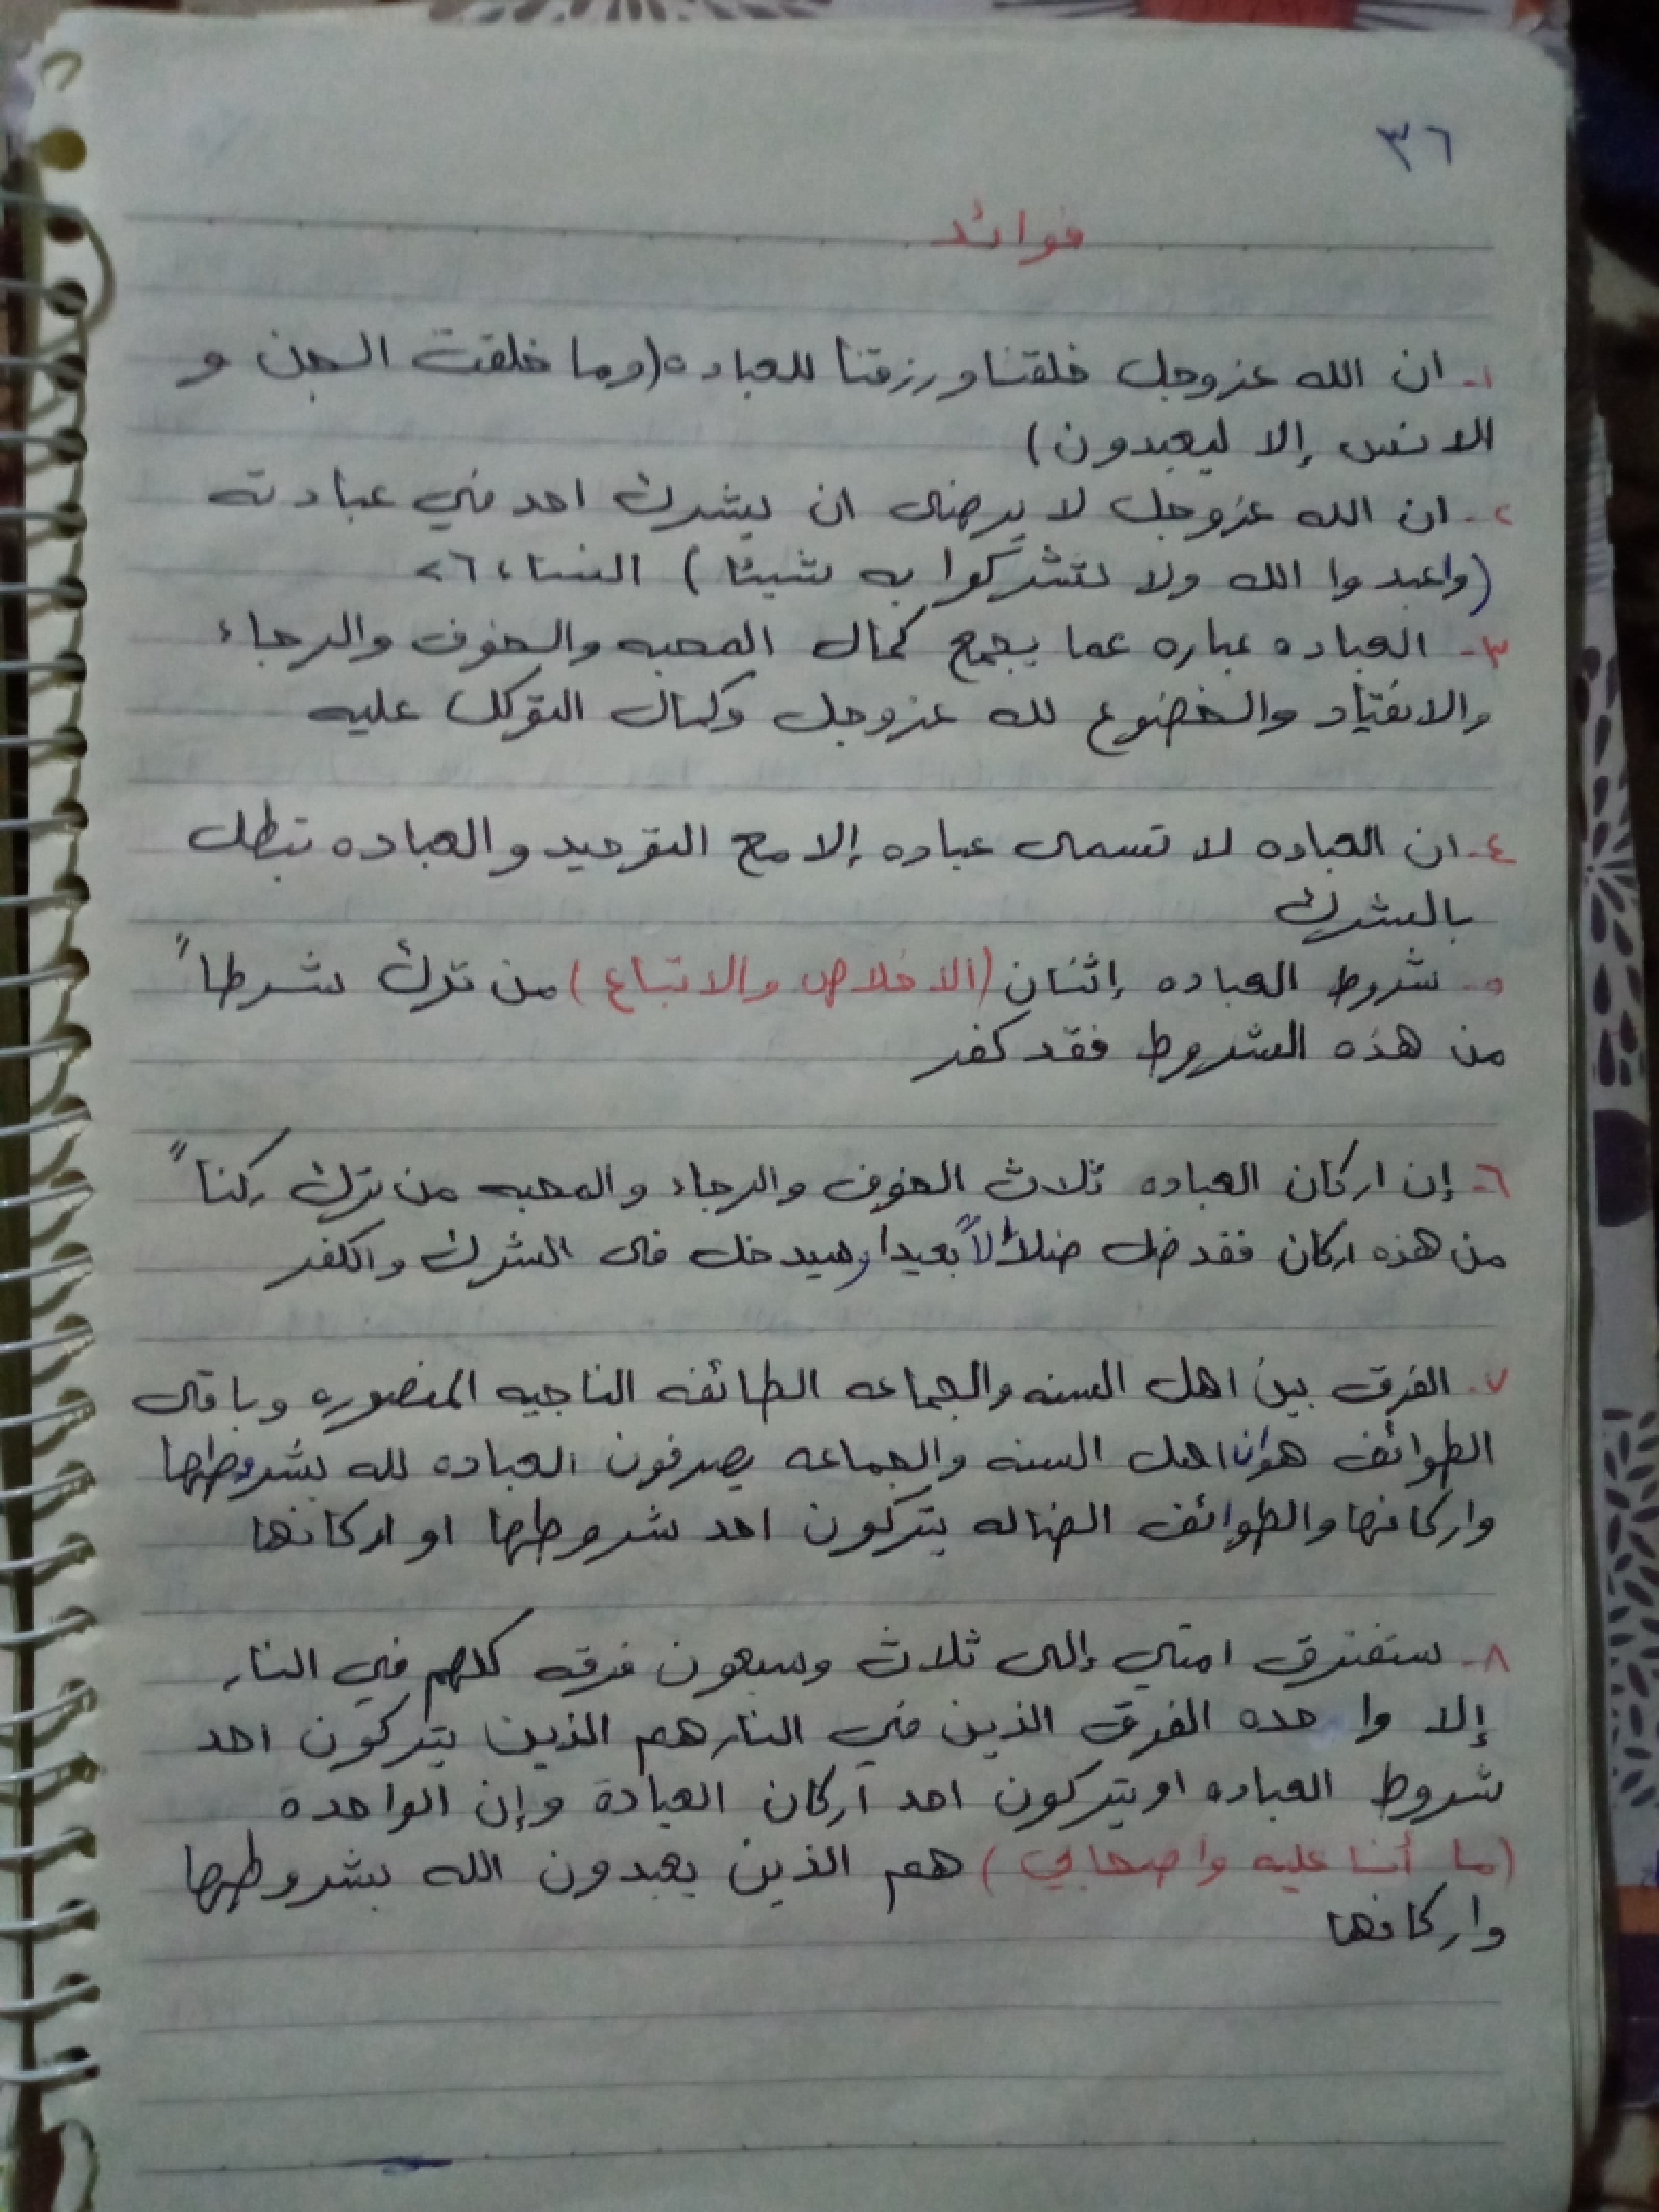 ٣٦
فوائد
١- ان الله عزوجل خلقنا ورزقنا للعباده (وما خلقت الجن و
الانس إلا ليعبدون)
٢- ان الله عزوجل لا يرضى ان يشرك احد في عبادته
(واعبدوا الله ولا تشركوا به شيئا) النساء ٢٦
٣- العباده عباره عما يجمع كمال المحبه والخوف والرجاء
والانقياد والخضوع لله عزوجل وكمال التوكل عليه
٤- ان العباده لا تسمى عباده إلا مع التوحيد والعباده تبطل
بالشرك
٥- شروط العباده إثنان (الاخلاص والاتباع) من ترك شرطاً
من هذه الشروط فقد كفر
٦- إن اركان العباده ثلاث الخوف والرجاء والمحبه من ترك ركناً
من هذه اركان فقد ضل ضلالاً بعيدا وسيدخل فى الشرك والكفر
٧- الفرق بين اهل السنه والجماعه الطائفه الناجيه المنصوره وباقى
الطوائف هو ان اهل السنه والجماعه يصرفون العباده لله بشروطها
واركانها والطوائف الضاله يتركون احد شروطها او اركانها
٨- ستفترق امتي إلى ثلاث وسبعون فرقه كلهم في النار
إلا واحده الفرق الذين في النار هم الذين يتركون احد
شروط العباده او يتركون احد أركان العبادة وإن الواحدة
(ما أنا عليه وأصحابي) هم الذين يعبدون الله بشروطها
واركانها